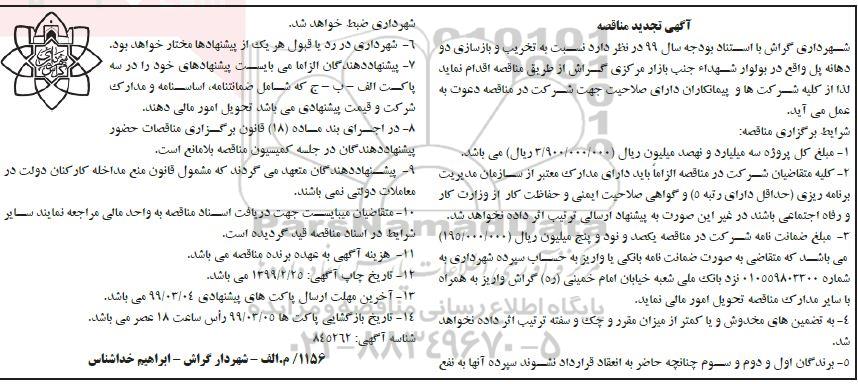 آگهی تجدید مناقصه
شهرداری گراش با استناد بودجه سال ۹۹ در نظر دارد نسبت به تخریب و بازسازی دو
دهانه پل واقع در بولوار شهداء جنب بازار مرکزی گراش از طریق مناقصه اقدام نماید
لذا از کلیه شرکت ها و پیمانکاران دارای صلاحیت جهت شرکت در مناقصه دعوت به
عمل می آید.
شرایط برگزاری مناقصه:
۱- مبلغ کل پروژه سه میلیارد و نهصد میلیون ریال (۳/۹۰۰/۰۰۰/۰۰۰ ریال) می باشد.
۲- کلیه متقاضیان شرکت در مناقصه الزاماً باید دارای مدارک معتبر از سازمان مدیریت
برنامه ریزی (حداقل دارای رتبه ۵) و گواهی صلاحیت ایمنی و حفاظت کار از وزارت کار
و رفاه اجتماعی باشند در غیر این صورت به پیشنهاد ارسالی ترتیب اثر داده نخواهد شد.
۳- مبلغ ضمانت نامه شرکت در مناقصه یکصد و نود و پنج میلیون ریال (۱۹۵/۰۰۰/۰۰۰)
می باشد که متقاضی به صورت ضمانت نامه بانکی یا واریز به حساب سپرده شهرداری به
شماره ۰۱۰۵۵۹۸۰۳۳۰۰ نزد بانک ملی شعبه خیابان امام خمینی (ره) گراش واریز به همراه
با سایر مدارک مناقصه تحویل امور مالی نماید.
۴- به تضمین های مخدوش و یا کمتر از میزان مقرر و چک و سفته ترتیب اثر داده نخواهد
شد.
۵- برندگان اول و دوم و سوم چنانچه حاضر به انعقاد قرارداد نشوند سپرده آنها به نفع
شهرداری ضبط خواهد شد.
۶- شهرداری در رد یا قبول هر یک از پیشنهادها مختار خواهد بود.
۷- پیشنهاددهندگان الزاما می بایست پیشنهادهای خود را در سه
پاکت الف – ب – ج که شامل ضمانتنامه، اساسنامه و مدارک
شرکت و قیمت پیشنهادی می باشد تحویل امور مالی دهند.
۸- در اجرای بند ماده (۱۸) قانون برگزاری مناقصات حضور
پیشنهاددهندگان در جلسه کمیسیون مناقصه بلامانع است.
۹- پیشنهاددهندگان متعهد می گردند که مشمول قانون منع مداخله کارکنان دولت در
معاملات دولتی نمی باشند.
۱۰- متقاضیان میبایست جهت دریافت اسناد مناقصه به واحد مالی مراجعه نمایند سایر
شرایط در اسناد مناقصه قید گردیده است.
۱۱- هزینه آگهی به عهده برنده مناقصه می باشد.
۱۲- تاریخ چاپ آگهی: ۱۳۹۹/۲/۲۵ می باشد.
۱۳- آخرین مهلت ارسال پاکت های پیشنهادی ۹۹/۰۳/۰۴ می باشد.
۱۴- تاریخ بازگشایی پاکت ها ۹۹/۰۳/۰۵ رأس ساعت ۱۸ عصر می باشد.
شناسه آگهی: ۸۴۵۲۶۲
۱۱۵۶/ م.الف – شهردار گراش – ابراهیم خداشناس
ParsNamadData
پایگاه اطلاع رسانی مناقصه و مزایده
۰۲۱-۸۸۳۴۹۶۷۰-۵